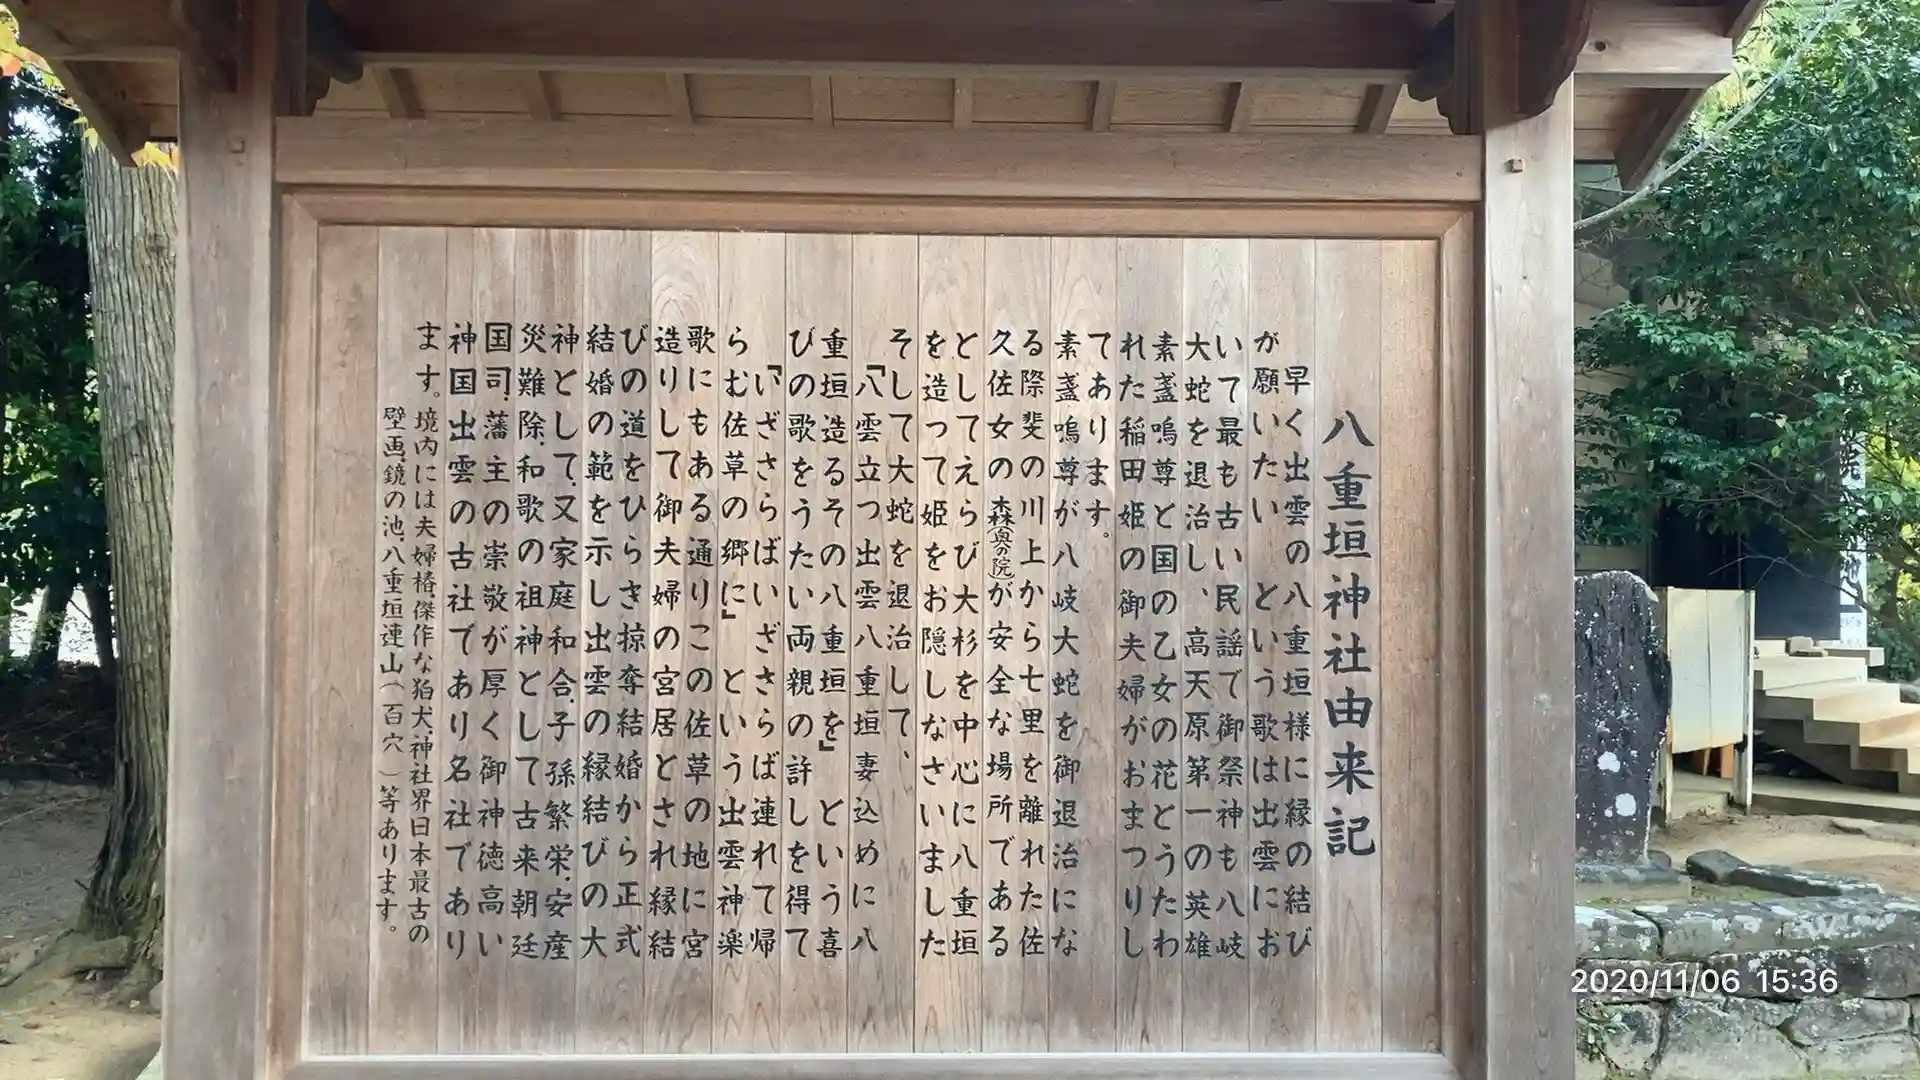 八重垣神社由来記
早く出雲の八重垣様に縁の結び
が願いたい という歌は出雲にお
いて最も古い民謡で御祭神も八岐
大蛇を退治し、高天原第一の英雄
素盞嗚尊と国の乙女の花とうたわ
れた稲田姫の御夫婦がおまつりし
てあります。
素盞嗚尊が八岐大蛇を御退治にな
る際斐の川上から七里を離れた佐
久佐女の森(奥の院)が安全な場所である
としてえらび大杉を中心に八重垣
を造って姫をお隠しなさいました
そして大蛇を退治して、
「八雲立つ出雲八重垣妻込めに八
重垣造るその八重垣を」という喜
びの歌をうたい両親の許しを得て
「いざさらばいざさらば連れて帰
らむ佐草の郷に」という出雲神楽
歌にもある通りこの佐草の地に宮
造りして御夫婦の宮居とされ縁結
びの道をひらき掠奪結婚から正式
結婚の範を示し出雲の縁結びの大
神として、又家庭和合、子孫繁栄、安産
災難除、和歌の祖神として古来朝廷
国司、藩主の崇敬が厚く御神徳高い
神国出雲の古社であり名社であり
ます。境内には夫婦椿、傑作な狛犬、神社界日本最古の
壁画、鏡の池、八重垣連山(百穴)等あります。
2020/11/06 15:36